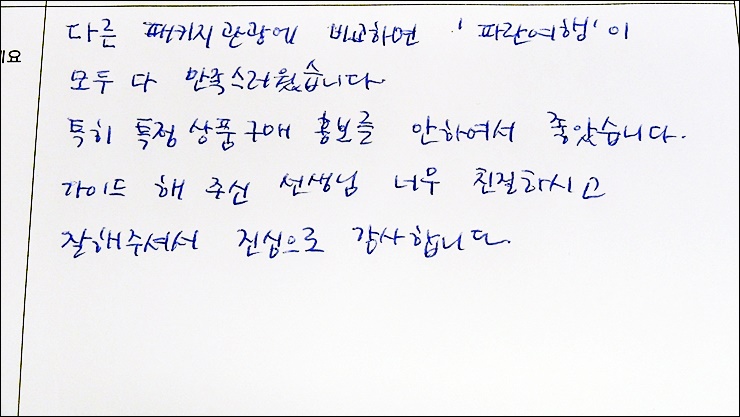 다른 패키지관광에 비교하면 '파란여행'이
모두 다 만족스러웠습니다.
특히 특정상품구매 홍보를 안하여서 좋았습니다.
가이드 해 주신 선생님 너무 친절하시고
잘해주셔서 진심으로 감사합니다.